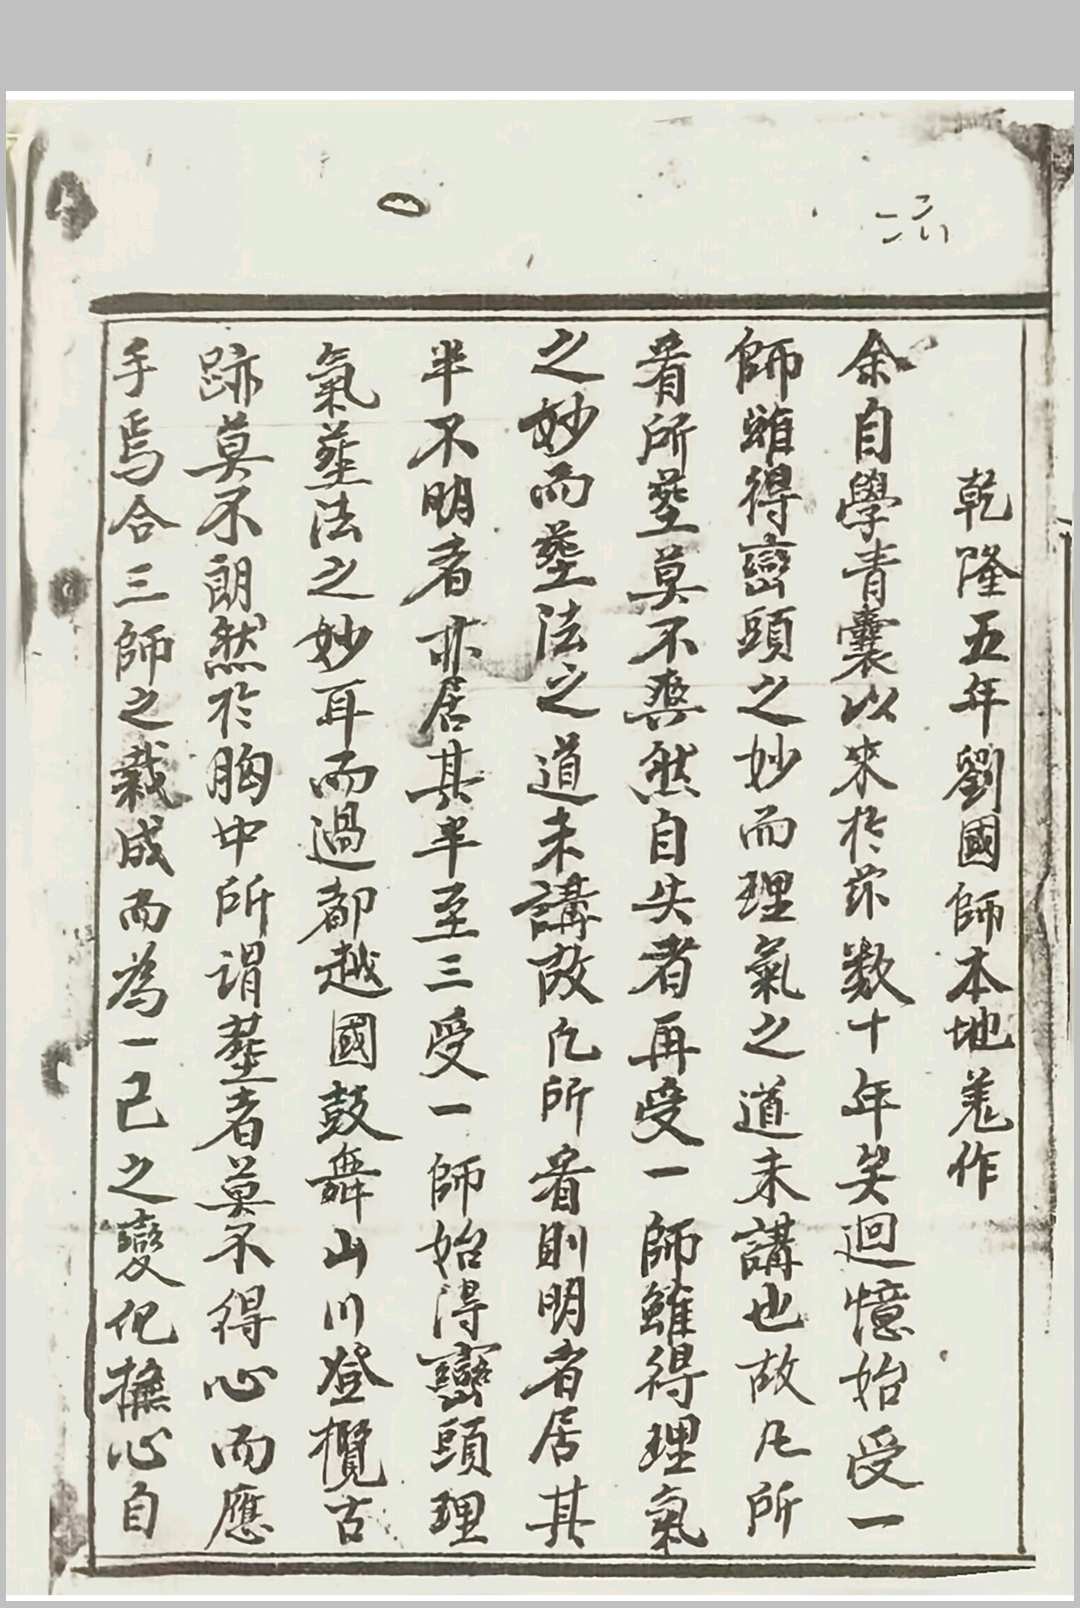 乾隆五年劉國師本地羗作
余自學青囊以來於茲数十年矣迴憶始受一
師雖得巒頭之妙而理氣之道未講也故凡所
看所塟莫不爽然自失者再受一師雖得理氣
之妙而塟法之道未講故凡所看則明者居其
半不明者亦居其半至三受一師始得巒頭理
氣塟法之妙耳而過都越國鼓舞山川登欖古
跡莫不朗然於胸中所谓塟者莫不得心而應
手焉合三師之裁成而為一己之變化撫心自